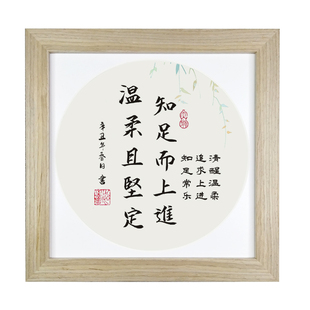 知足而上進
温柔且堅定
清醒温柔
追求上进
知足常乐
辛丑年春月
書